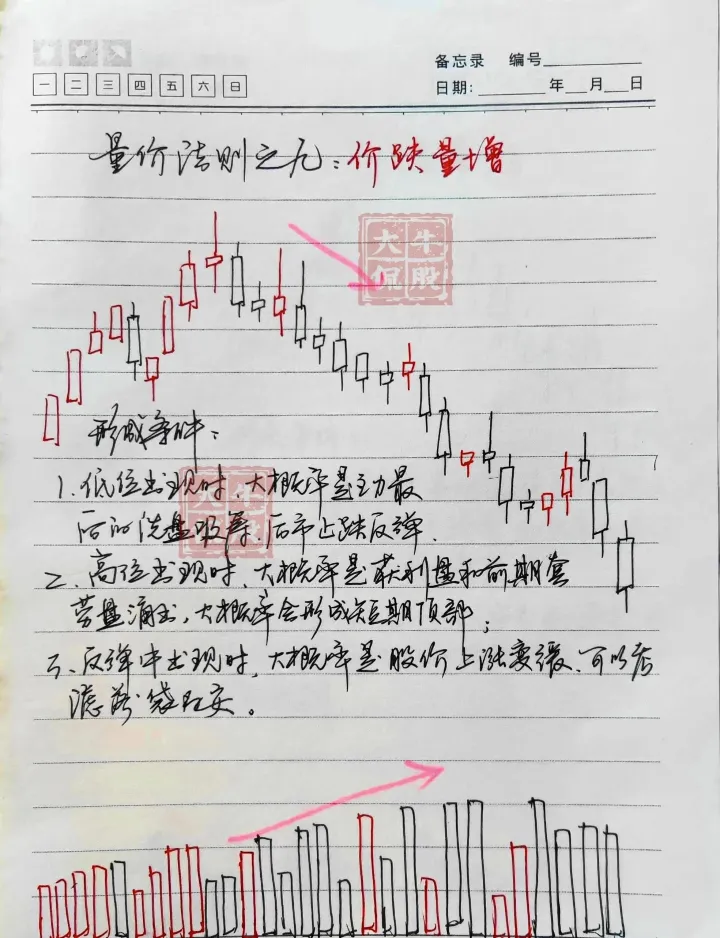 备忘录 编号
一 二 三 四 五 六 日
日期: 年 月 日
量价法则之九：价跌量增
大牛
侃股
形成条件：
1、低位出现时，大概率是主力最
后的洗盘吸筹，后市止跌反弹.
二、高位出现时，大概率是获利盘和前期套
劳盘涌出，大概率会形成短期顶部；
三、反弹中出现时，大概率是股价上涨变缓，可以考
虑落袋为安。